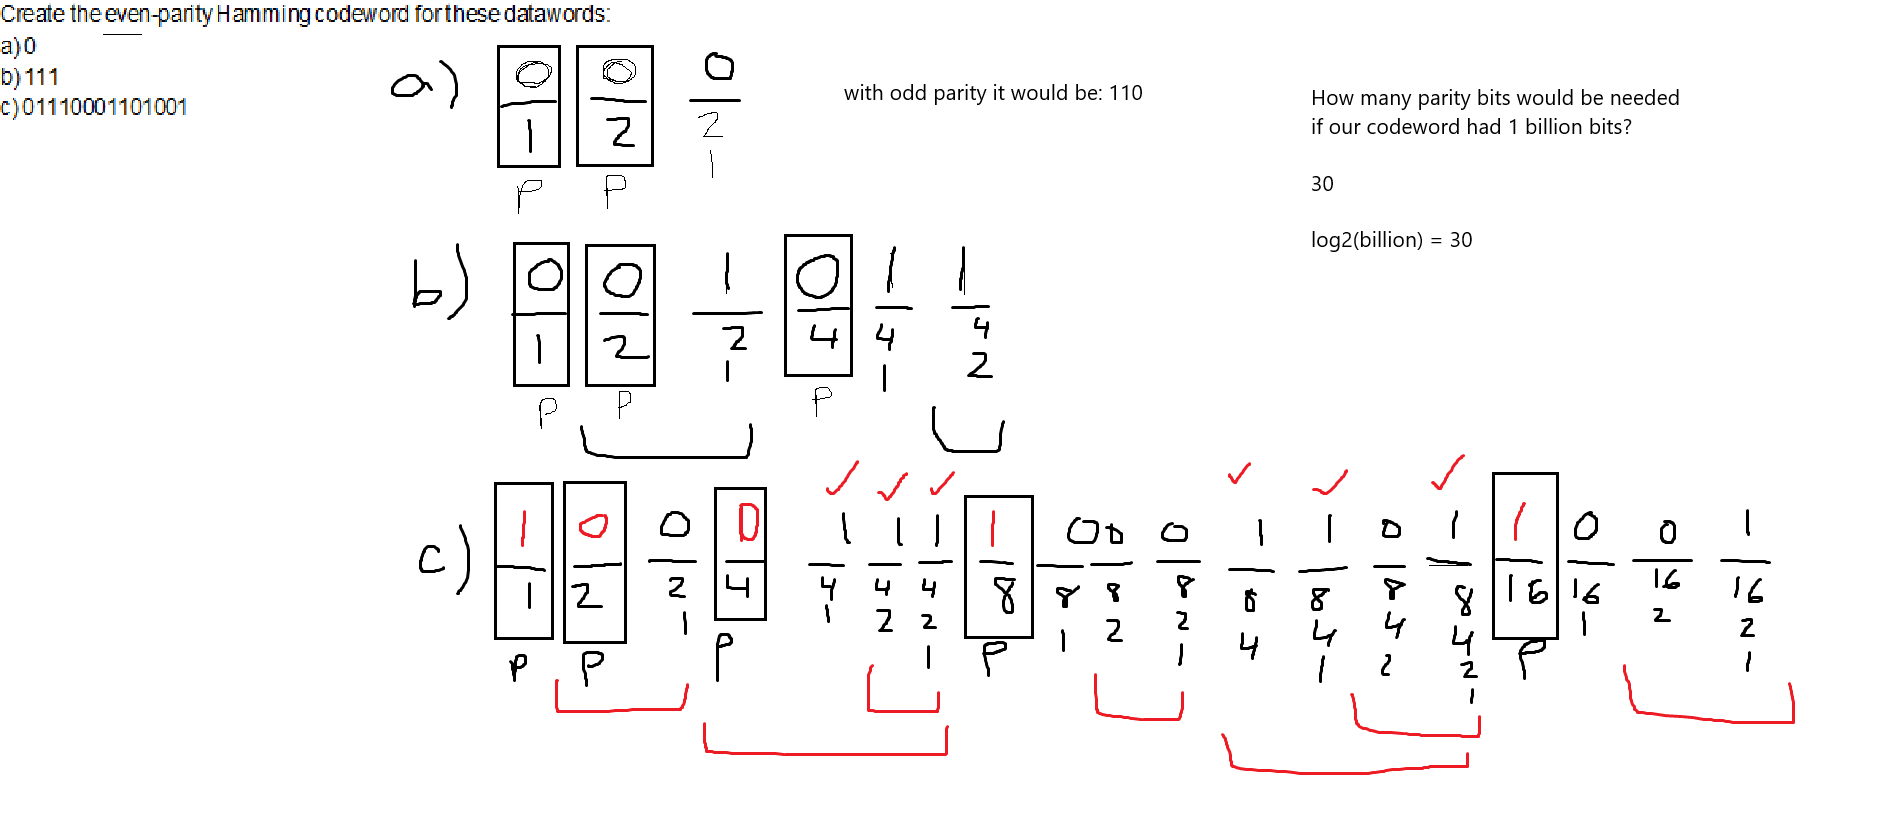 Create the even-parity Hamming codeword for these datawords:
a) 0
b) 111
c) 01110001101001
a) 0 0 0
1 2 2
1
P P
with odd parity it would be: 110
How many parity bits would be needed
if our codeword had 1 billion bits?
30
log2(billion) = 30
b) 0 0 1 0 1 1
1 2 2 4 4 4
1 1 2
P P P
c) 1 0 0 0 1 1 1 1 0 0 0 1 1 0 1 1 0 0 1
1 2 2 4 4 4 4 8 8 8 8 8 8 8 8 16 16 16 16
1 1 2 2 1 2 2 4 4 4 4 1 2 2
1 1 1 2 2 1
1
P P P P P